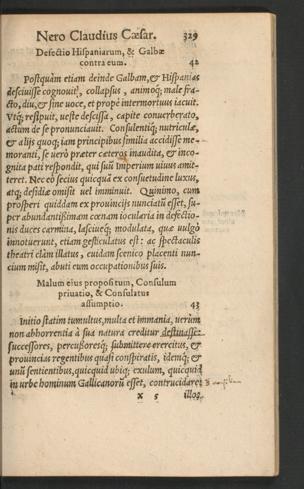 Nero Claudius Cæsar. 329
Defectio Hispaniarum, & Galbæ
contra eum. 42
Postquàm etiam deinde Galbam, & Hispanias
desciuisse cognouit, collapsus, animoq; male fra-
cto, diu, & sine uoce, et propè intermortuus iacuit.
Vtq; resipuit, ueste descissa, capite conuerberato,
actum de se pronunciauit. Consulentiq; nutriculæ,
& alijs quoq; iam principibus similia accidisse me-
moranti, se uerò præter cæteros inaudita, & inco-
gnita pati respondit, qui suũ imperium uiuus amit-
teret. Nec eò secius quicquã ex consuetudine luxus,
atq; desidiæ omisit uel imminuit. Quinimo, cum
prosperi quiddam ex prouincijs nunciatũ esset, su-
per abundantißimam cœnam iocularia in defectio-
nis duces carmina, lasciueq; modulata, quæ uulgò
innotuerunt, etiam gesticulatus est: ac spectaculis
theatri clàm illatus, cuidam scenico placenti nun-
cium misit, abuti eum occupationibus suis.
Malum eius propositum, Consulum
priuatio, & Consulatus
assumptio. 43
Initio statim tumultus, multa et immania, uerùm
non abhorrentia à sua natura creditur destinasse:
successores, percussoresq; submittere exercitus, &
prouincias regentibus quasi conspiratis, idemq; &
unũ sentientibus, quicquid ubiq; exulum, quicquid
in urbe hominum Gallicanorũ esset, contrucidare:
x 5 illos,